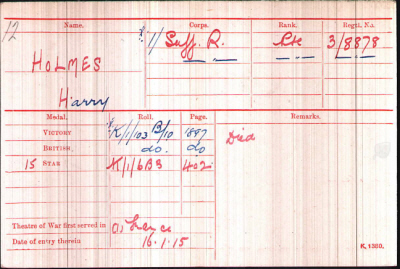 12
Name. Corps. Rank. Regtl. No.
HOLMES 1/ Suff. R. Pte 3/8878
Harry
Medal. Roll. Page. Remarks.
VICTORY K/1/103 B/10 1897 Died
BRITISH do. do
15 STAR K/1/6B3 402
Theatre of War first served in (1) France
Date of entry therein 16.1.15
K. 1380.